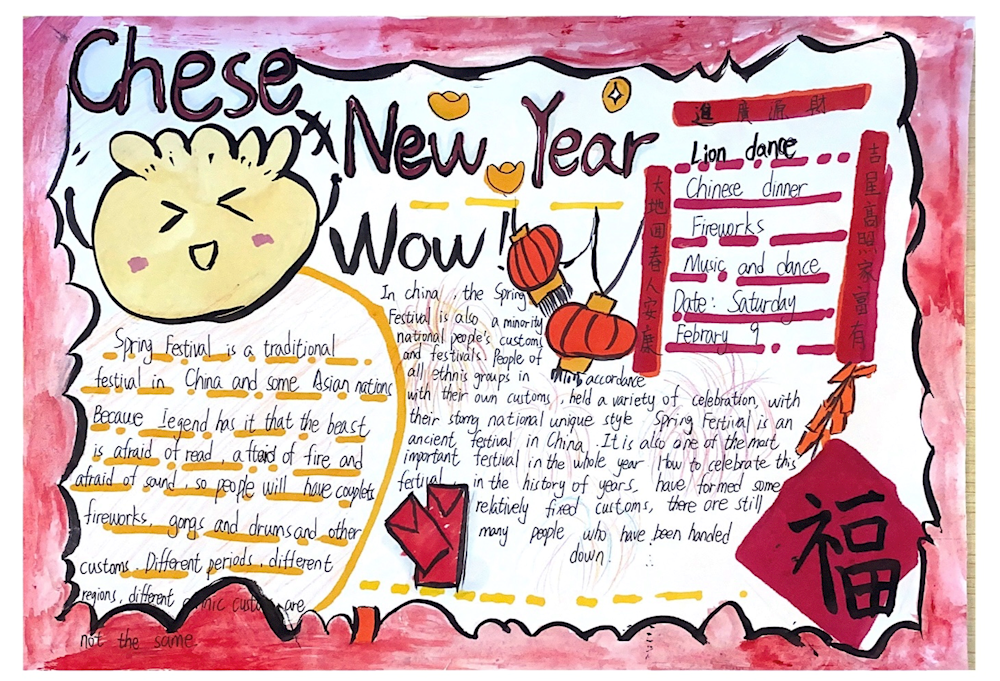 Chese
New Year
Wow!
進廣源財
大地回春人安康
吉星高照家富有
Lion dance
Chinese dinner
Fireworks
Music and dance
Date: Saturday
Febrary 9
Spring Festival is a traditional
festival in China and some Asian nations
Becaue legend has it that the beast
is afraid of read, afraid of fire and
afraid of sound, so people will have couplets
fireworks, gorgs and drums and other
customs. Different periods, different
regions, different ethnic customs are
not the same.
In china, the Spring
Festival is also a minority
national people's customs
and festivals People of
all ethnis groups in accordance
with their own customs, held a variety of celebration, with
their storng national unique style Spring Festival is an
ancient festival in China. It is also one of the most
important festival in the whole year How to celebrate this
festival in the history of years, have formed some
relatively fixed customs, there are still
many people who have been handed
down.
福